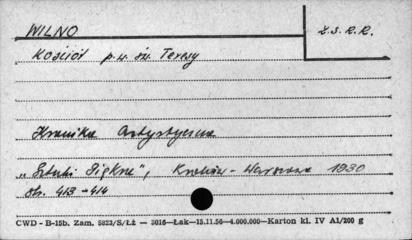 WILNO
Z.S.R.R.
Kościół p.w. św. Teresy
Kronika Artystyczna
„Sztuki Piękne", Kraków-Warszawa 1930
str. 413-414
CWD - B-15b. Zam. 5823/S/Łż — 3016—Łak—15.11.56—4.000.000—Karton kl. IV A1/200 g